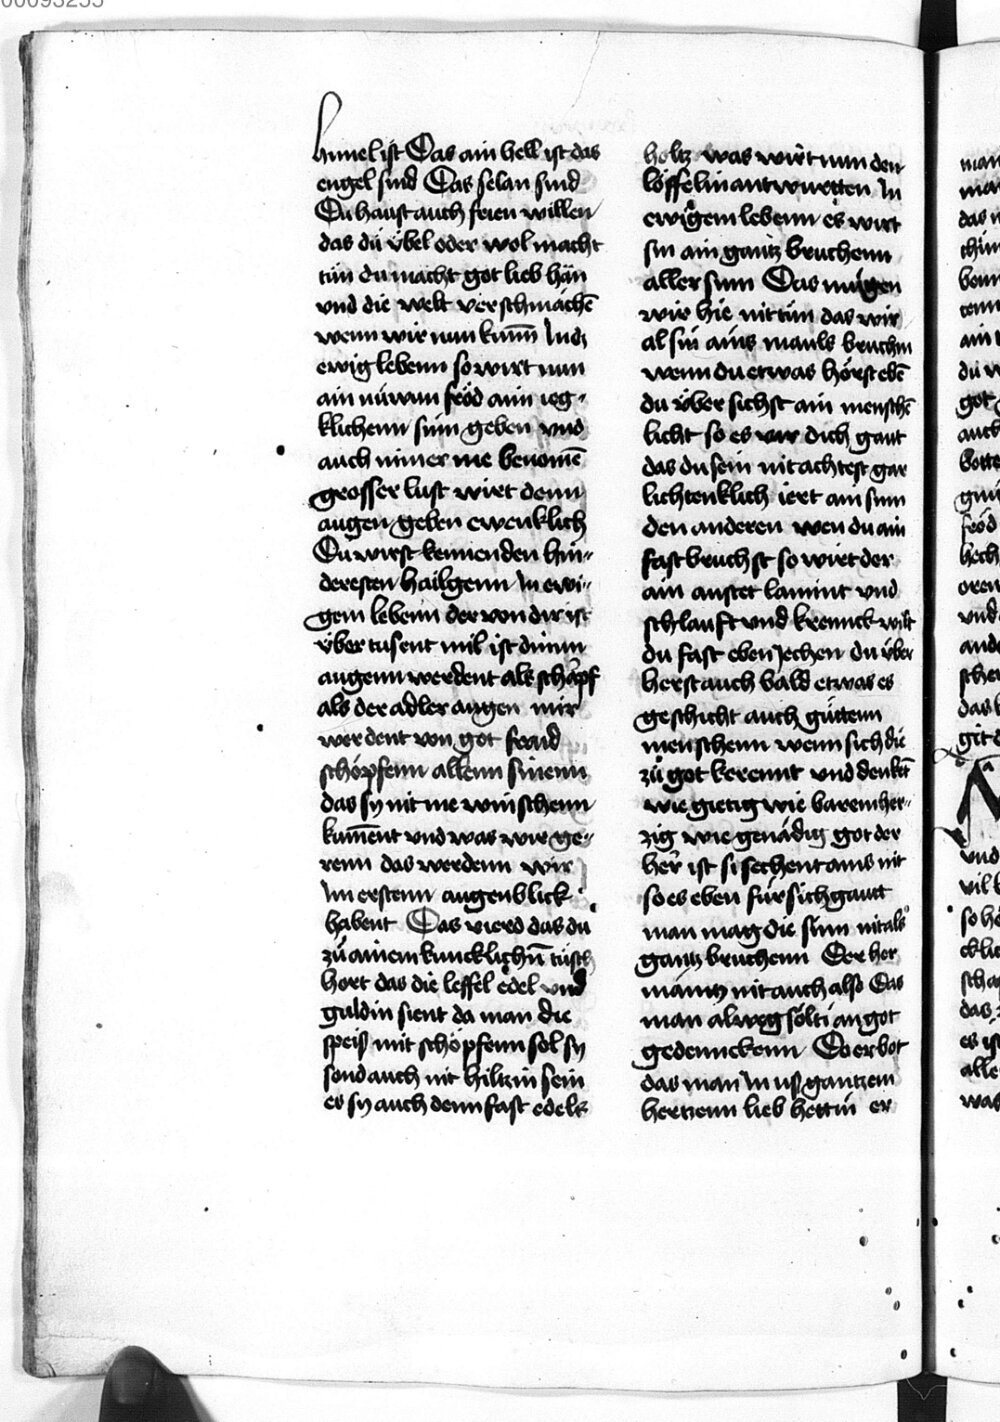 00093255
himel ist Das ain hell ist das
engel sind Das selan sind
Du haust auch freien willen
das dü übel oder wol macht
tün du macht got lieb hän
vnd die welt verschmächē
wenn wir nun kum̄ Inds
ewig lebenn so wirt nun
ain nüwun fröd aim ieg-
klichenn sinn geben vnd
auch nimer me benomē
grosser lust wirt denn
augen geben ewenklich
Du wirst kennen den hin-
deresten hailgenn In ewi-
gem lebenn der von dir ist
über tusent mil ist dinnn
augenn werdent als scharpf
als der adler augen mir
werdent von got fraid
schöpfenn allenn sinenn
das sy nit me wünschenn
kum̄ent vnd was wir ge-
renn das werdenn wir
Im erstenn augenblick
habent Das vierd das du
zü ainem kuncklichn̄ tüsch
hört das die leffel edel vnd
guldin sient da man die
speiß mit schöpfenn sol sy
sond auch nit hiltzin sein
es sy auch denn fast edels
holtz was wirt nun den
löffelin antwurtten In
ewigem lebenn es wirt
sin ain gantz bruchenn
aller sinn Das mügen
wir hie nit tün das wir
al sin ains mauls bruchin
wenn du etwas hörst ebē
du über sichst ain menschē
licht so es vor dich gaut
das du sein nit achtest gar
lichtenklich iert ain sinn
den anderen wen du ain
fast bruchst so wirt der
ain anster lamint vnd
schlauft vnd krennck wilt
du fast eben sechen du über
herst auch bald etwas es
geschicht auch güttenn
menschenn wenn sich die
zü got kerennt vnd denkēt
wie gietig wie baremher-
zig wie genädig got der
her ist si sechent ains nit
so es eben für sich gautt
man mag die sinn nit als
gantz bruchenn Der her
mainty nit auch also Das
man alweg sölti an got
gedennckenn Do er bot
das man In uß gantzem
hertzenn lieb hettin er